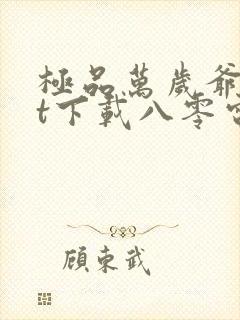 極品萬歲爺
t下載八零
顧東武